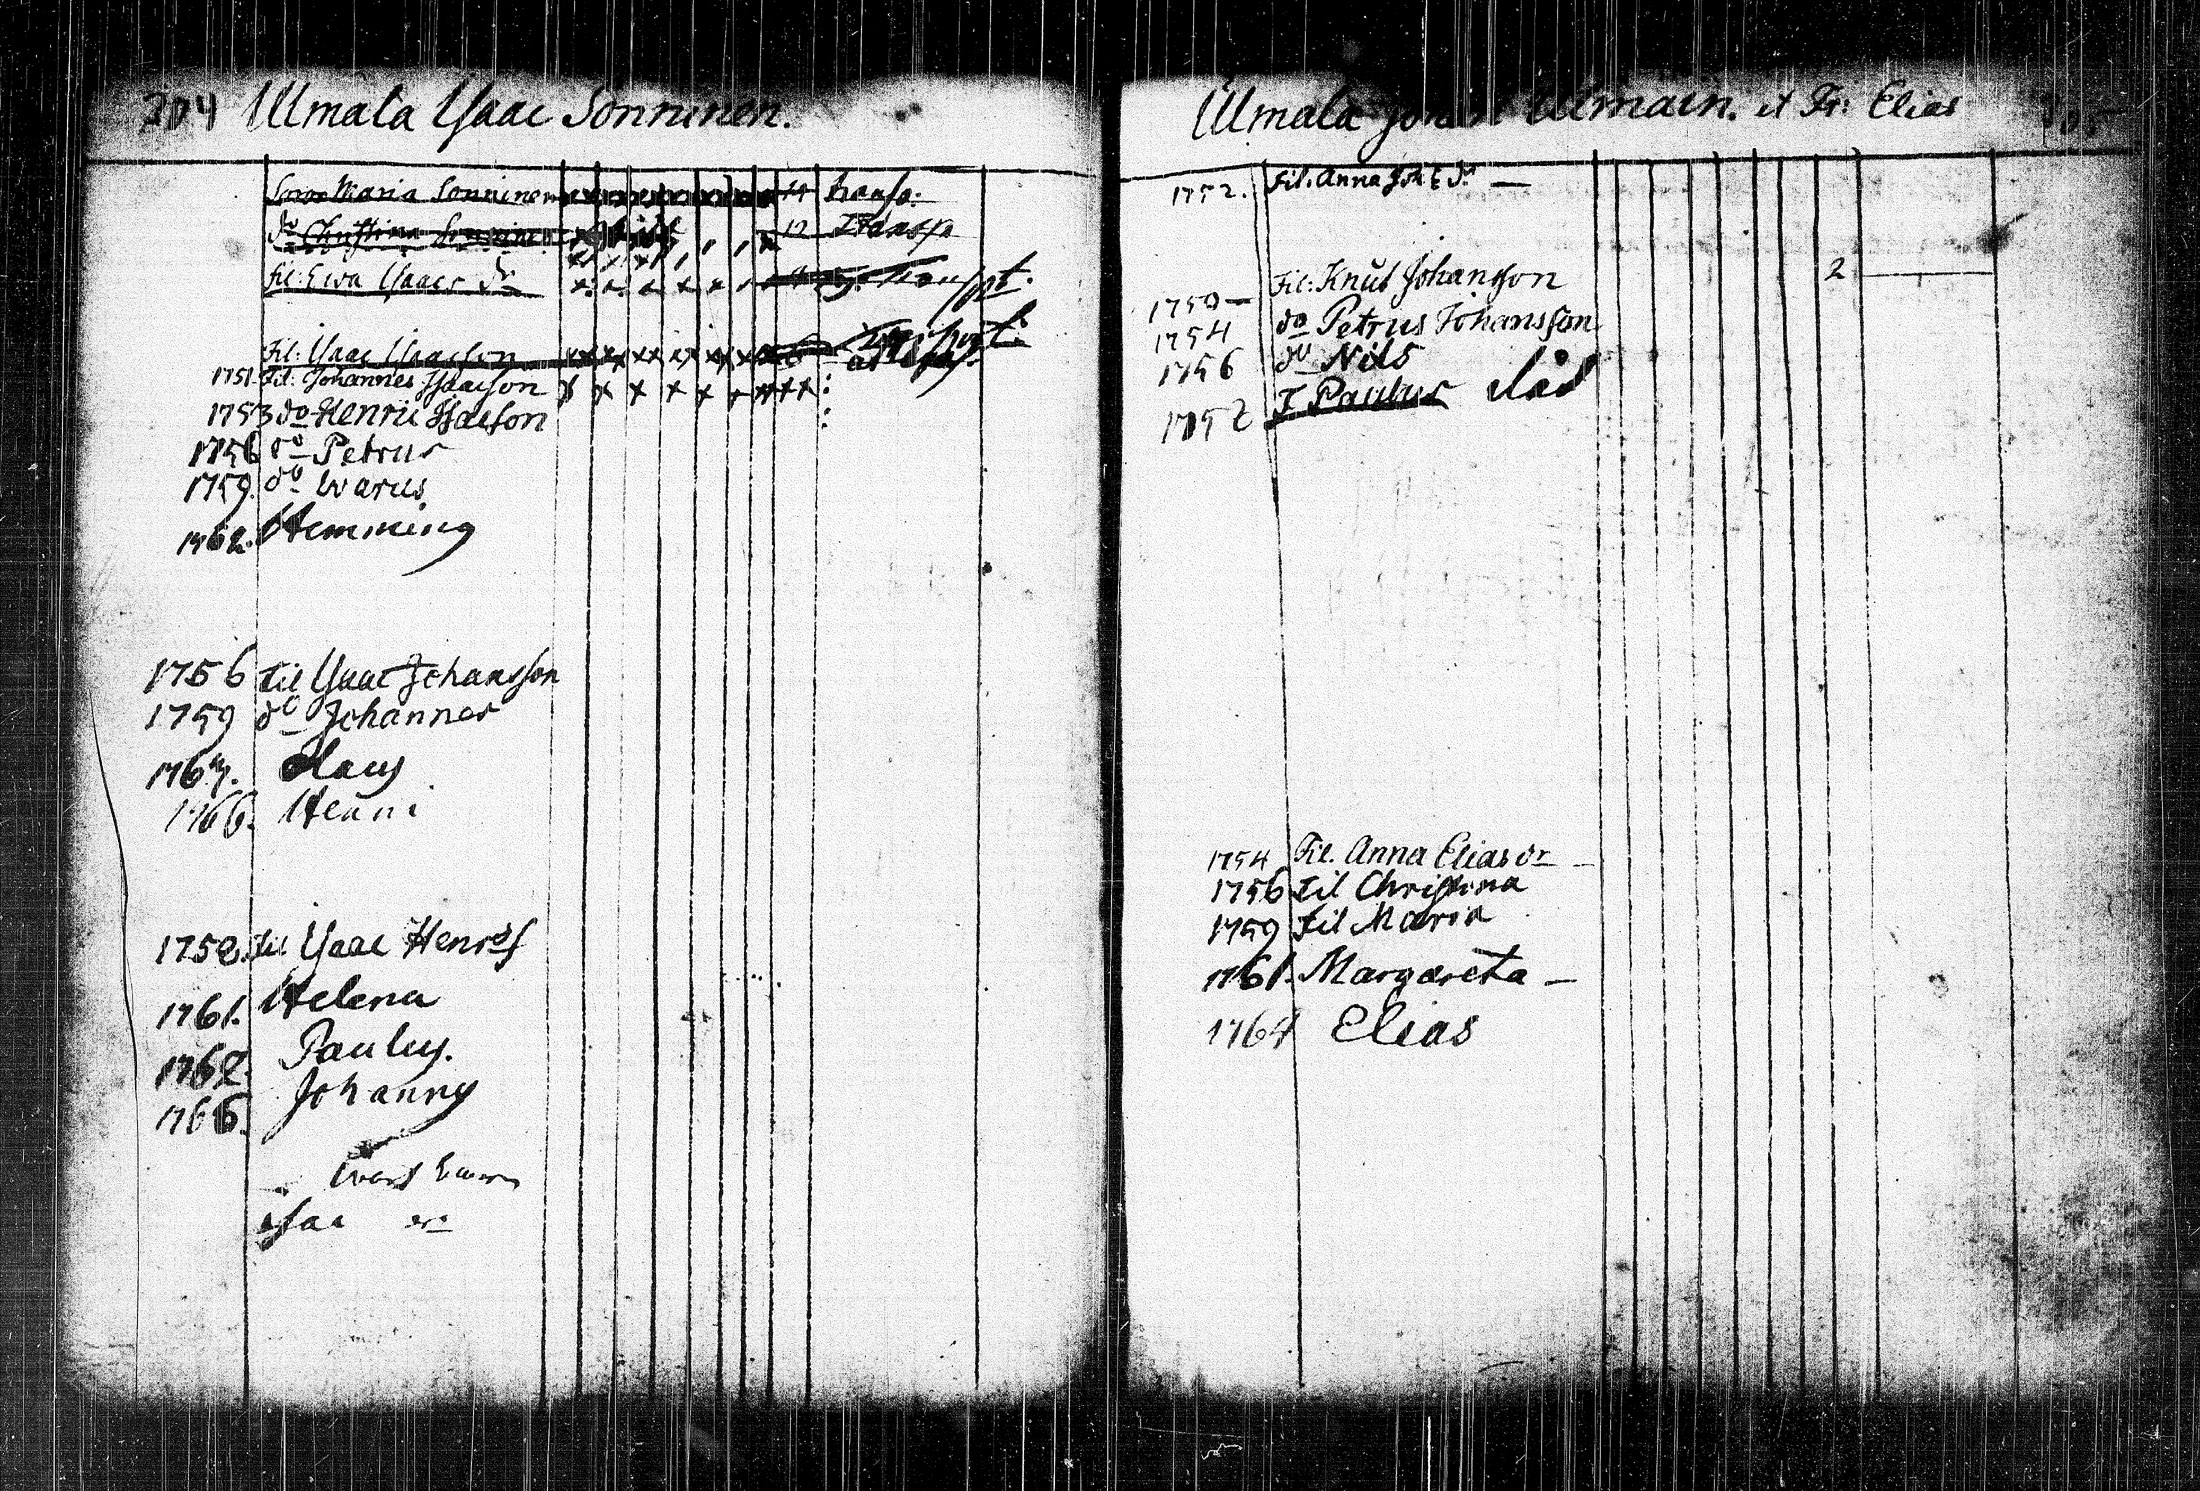 204 Ulmala Ysaac Sonninen.
Soror Maria Sonninen 14 transp.
do Christina Sonninen 12 Transp
Fil: Ewa Ysaacs dr transpt.
Fil: Ysaac Ysacsson
1751. Fil: Johannes Isacsson
1753 do Henric Isacson
1756 do Petrus
1759. do Warus
1762. Hemming
1756 Fil Ysaac Johansson
1759 do Johannes
1764. Claus
1766. Henric
1758. Fil Ysaac Henrs
1761. Helena
1762. Paulus.
1766. Johannes
Isaac
Ulmala Ulmain. et Fr: Elias
1752. Fil: Anna Joh: dr —
1750 — Fil: Knut Johansson 2
1754 do Petrus Johansson
1756 do Nils
1752 F Paulus död
1754 Fil. Anna Elias dr —
1756 Fil Christina
1759 Fil Maria
1761. Margareta —
1764 Elias